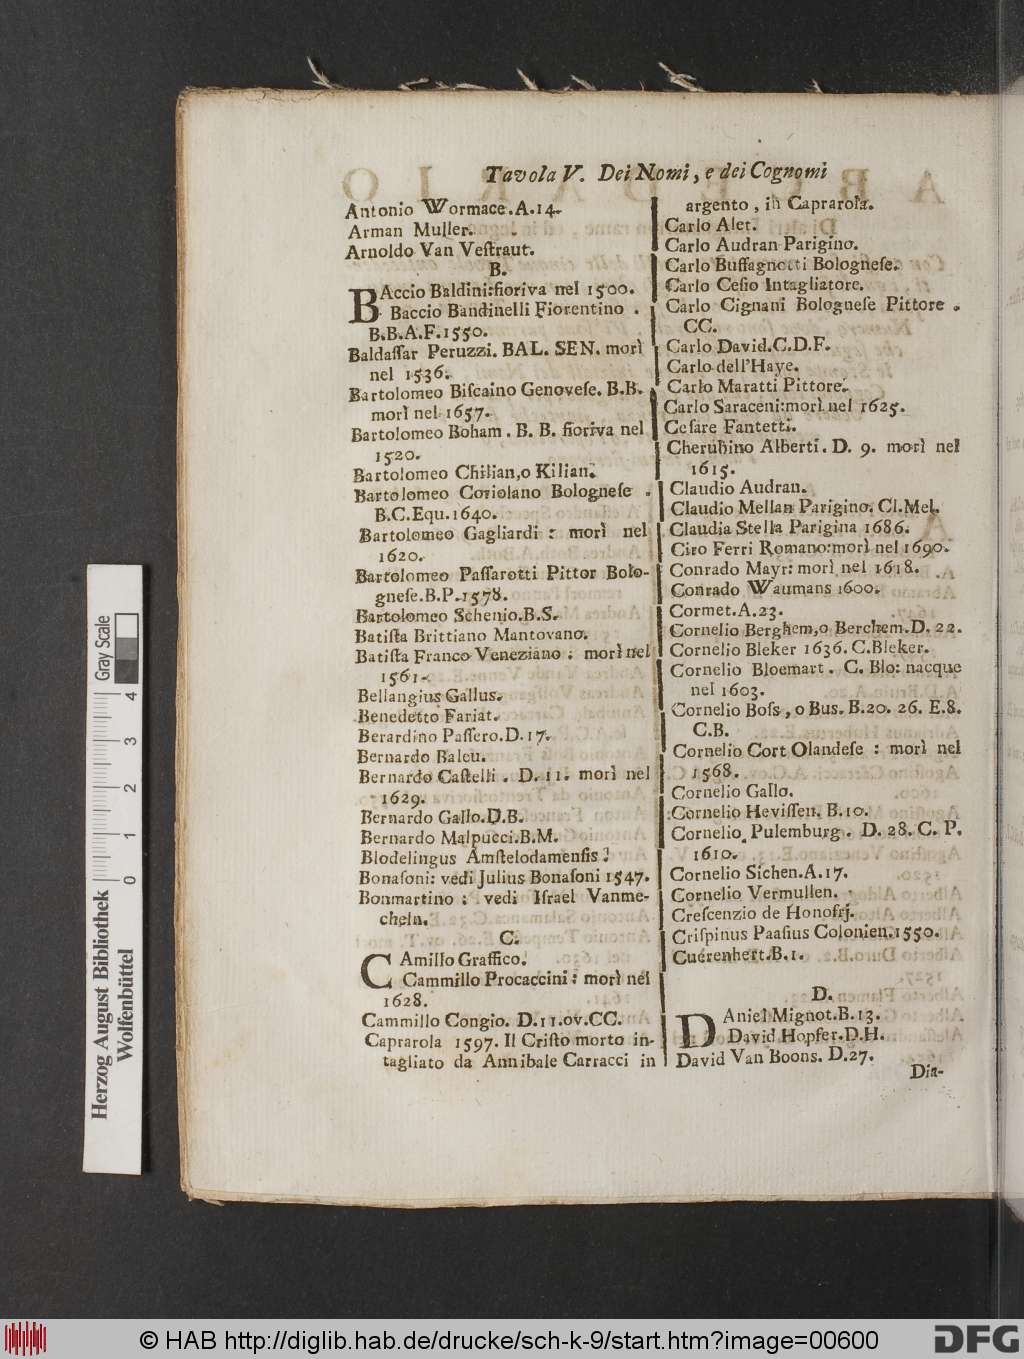 Tavola V. Dei Nomi, e dei Cognomi
Antonio Wormace.A.14.
Arman Muller.
Arnoldo Van Veſtraut.
B.
BAccio Baldini:fioriva nel 1500.
Baccio Bandinelli Fiorentino .
B.B.A.F.1550.
Baldaſſar Peruzzi. BAL. SEN. morì
nel 1536.
Bartolomeo Biſcaino Genoveſe. B.B.
morì nel 1657.
Bartolomeo Boham . B. B. fioriva nel
1520.
Bartolomeo Chilian,o Kilian.
Bartolomeo Coriolano Bologneſe .
B.C.Equ.1640.
Bartolomeo Gagliardi : morì nel
1620.
Bartolomeo Paſſarotti Pittor Bolo-
gneſe.B.P.1578.
Bartolomeo Schenio.B.S.
Batiſta Brittiano Mantovano.
Batiſta Franco Veneziano : morì nel
1561.
Bellangius Gallus.
Benedetto Fariat.
Berardino Paſſero.D.17.
Bernardo Baleu.
Bernardo Caſtelli . D. 11. morì nel
1629.
Bernardo Gallo.D.B.
Bernardo Malpucci.B.M.
Blodelingus Amſtelodamenſis.
Bonaſoni: vedi Julius Bonaſoni 1547.
Bonmartino : vedi Iſrael Vanme-
cheln.
C.
CAmillo Graffico.
Cammillo Procaccini : morì nel
1628.
Cammillo Congio. D.11.ov.CC.
Caprarola 1597. Il Criſto morto in-
tagliato da Annibale Carracci in
argento , in Caprarola.
Carlo Alet.
Carlo Audran Parigino.
Carlo Buffagnotti Bologneſe.
Carlo Ceſio Intagliatore.
Carlo Cignani Bologneſe Pittore .
CC.
Carlo David.C.D.F.
Carlo dell'Haye.
Carlo Maratti Pittore.
Carlo Saraceni:morì nel 1625.
Ceſare Fantetti.
Cherubino Alberti. D. 9. morì nel
1615.
Claudio Audran.
Claudio Mellan Parigino. Cl.Mel.
Claudia Stella Parigina 1686.
Ciro Ferri Romano:morì nel 1690.
Conrado Mayr: morì nel 1618.
Conrado Waumans 1600.
Cormet.A.23.
Cornelio Berghem,o Berchem.D. 22.
Cornelio Bleker 1636. C.Bleker.
Cornelio Bloemart . C. Blo: nacque
nel 1603.
Cornelio Boſs , o Bus. B.20. 26. E.8.
C.B.
Cornelio Cort Olandeſe : morì nel
1568.
Cornelio Gallo.
Cornelio Heviſſen. B.10.
Cornelio Pulemburg . D. 28. C. P.
1610.
Cornelio Sichen.A.17.
Cornelio Vermullen.
Creſcenzio de Honofrj.
Criſpinus Paaſius Colonien.1550.
Cuerenhert.B.1.
D.
DAniel Mignot.B.13.
David Hopfer.D.H.
David Van Boons. D.27.
Dia-
Herzog August Bibliothek
Wolfenbüttel
Gray Scale
0 1 2 3 4
© HAB http://diglib.hab.de/drucke/sch-k-9/start.htm?image=00600
DFG